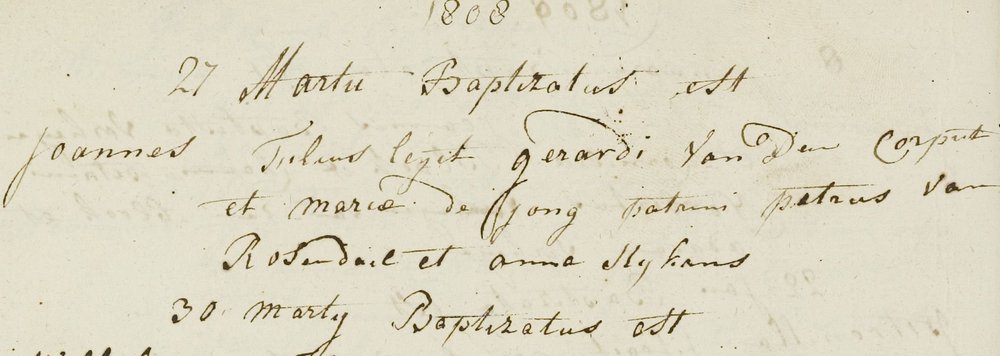 1808
27 Martii Baptizatus est
Joannes Filius legit gerardi Van Den Corput
et mariæ de Jong patrini petrus van
Rosendael et anna
30 marty Baptizatus est